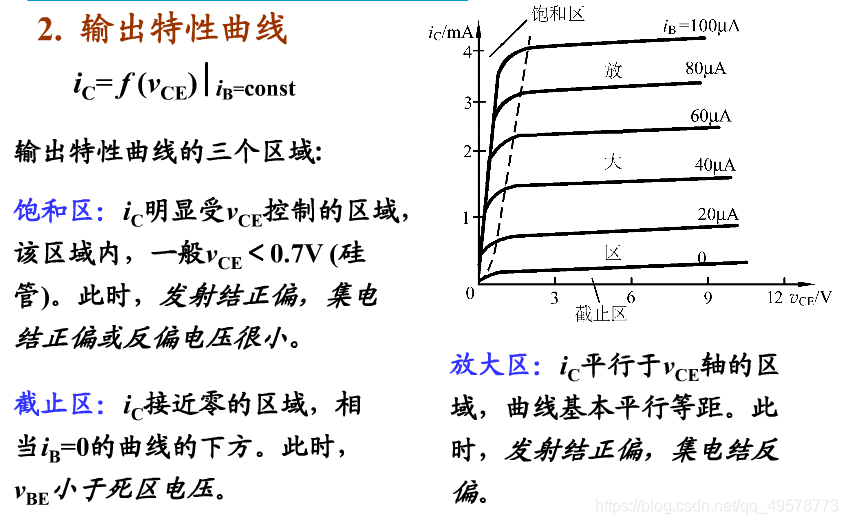 2. 输出特性曲线
iC=f(vCE)|iB=const
输出特性曲线的三个区域:
饱和区：iC明显受vCE控制的区域，
该区域内，一般vCE＜0.7V (硅
管)。此时，发射结正偏，集电
结正偏或反偏电压很小。
截止区：iC接近零的区域，相
当iB=0的曲线的下方。此时，
vBE小于死区电压。
iC/mA
饱和区
iB=100μA
4
放
80μA
3
60μA
2
大
40μA
1
20μA
区
0
0
3
6
9
12
vCE/V
截止区
放大区：iC平行于vCE轴的区
域，曲线基本平行等距。此
时，发射结正偏，集电结反
偏。
https://blog.csdn.net/qq_49578773